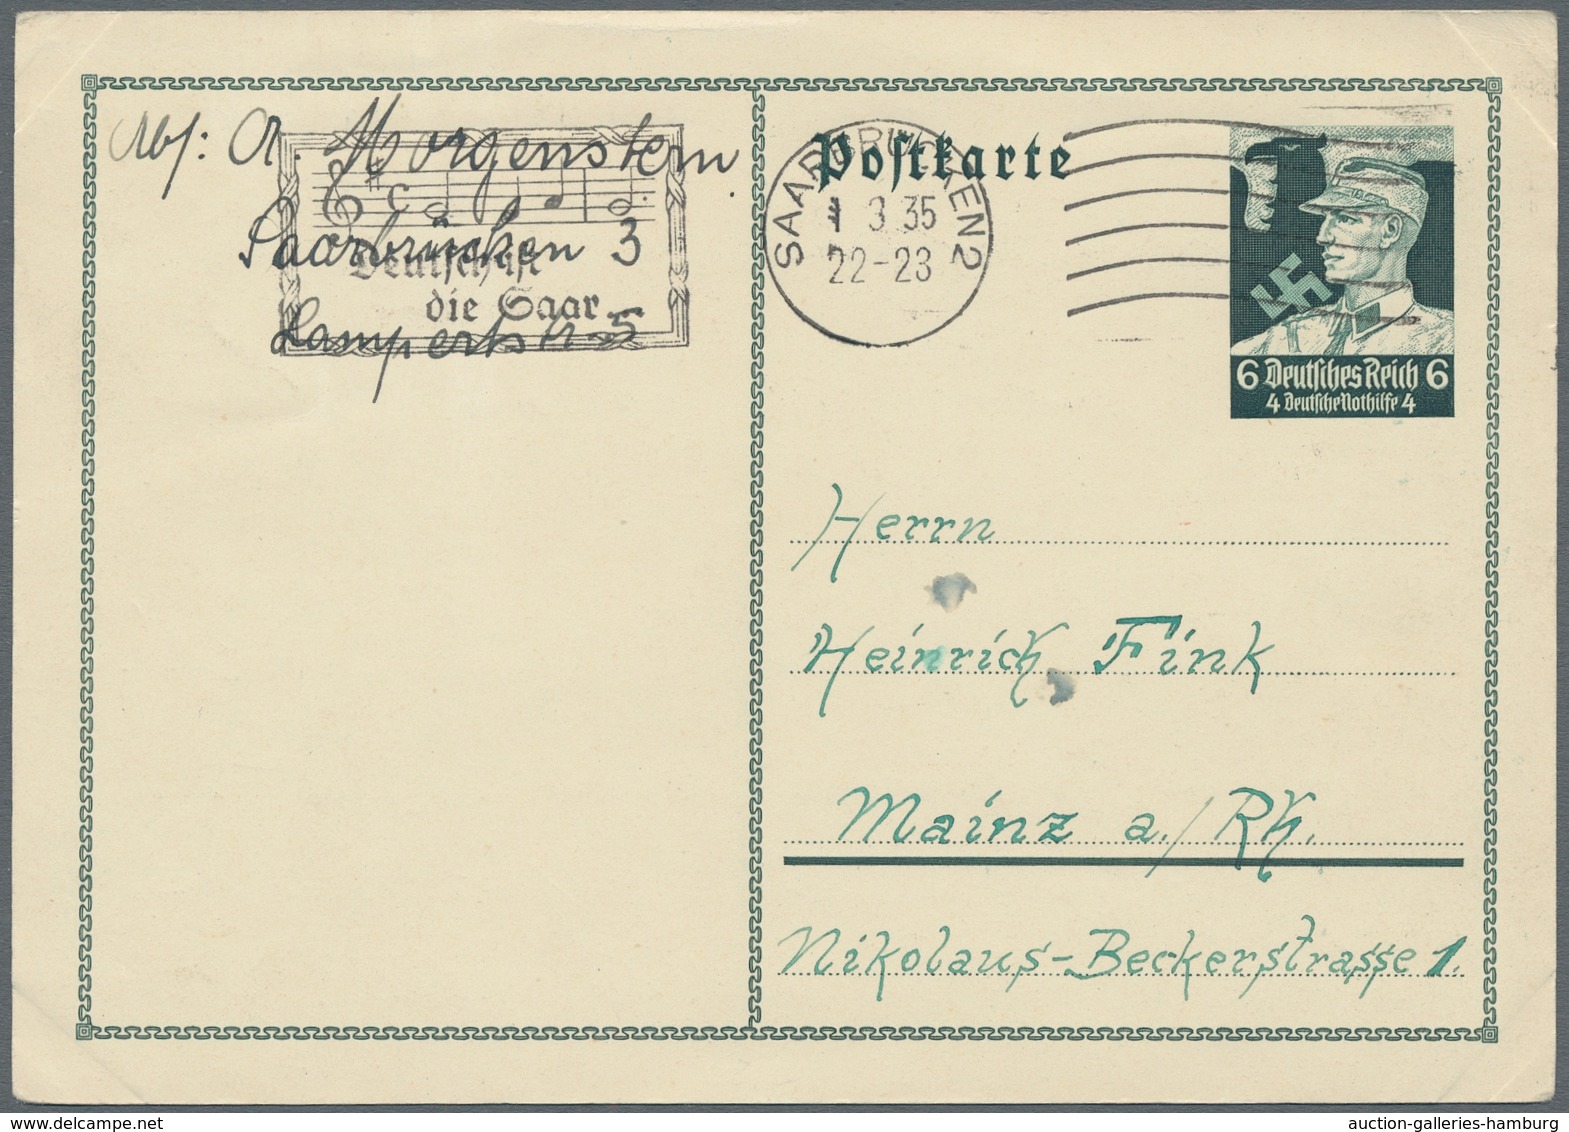 Abs: A. Morgenstern.
Saarbrücken 3
Lampertstr. 5
Deutsch ist
die Saar
Postkarte
SAARBRÜCKEN 2
1 3 35
22-23
6 Deutsches Reich 6
4 Deutsche Nothilfe 4
Herrn
Heinrich Fink
Mainz a./Rh.
Nikolaus-Beckerstrasse 1.
auction-galleries-hamburg